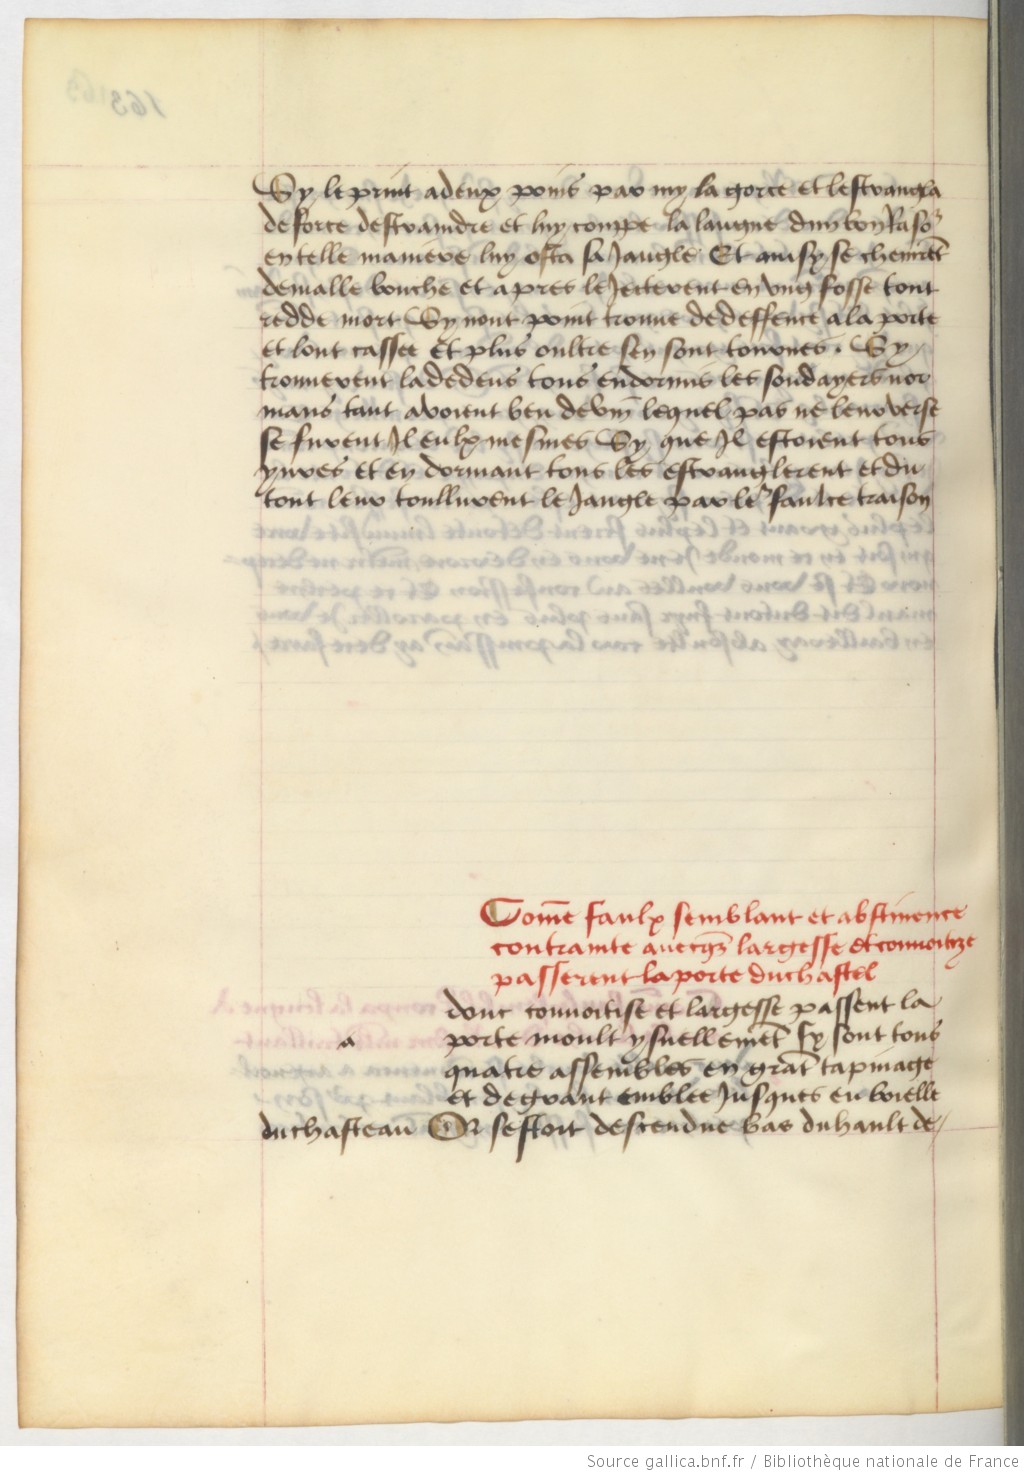 Sy le print a deux poins par my la gorce et lestrangla
de force destraindre et luy couppe la langue dun bon Raso
en telle maniere luy osta sa Jangle Et ainsy se chemiret
de malle bouche et apres le Jecterent en ung fosse tout
redde mort Sy nont point trouue de deffence a la porte
et lont cassee et plus oultre sen sont tournes. Sy
trouuerent la dedens tous endormis les souldayers nor
mans tant auoient beu de vin lequel pas ne leur verse
se furent Jl eulx mesmes Sy que Jl estoient tous
yures et en dormant tous les estranglerent et du
tout leur tollurent le Jangle par le faulce traison
Come faulx semblant et abstinence
contrainte auecqs largesse et conuoitize
passerent la porte du chastel
a
donc conuoitise et largesse passent la
porte moult ysnellemet sy sont tous
quatre assembles en grat tapinage
et de grant emblee Jusques en boielle
du chasteau Or sestoit descendue bas du hault de
Source gallica.bnf.fr / Bibliothèque nationale de France